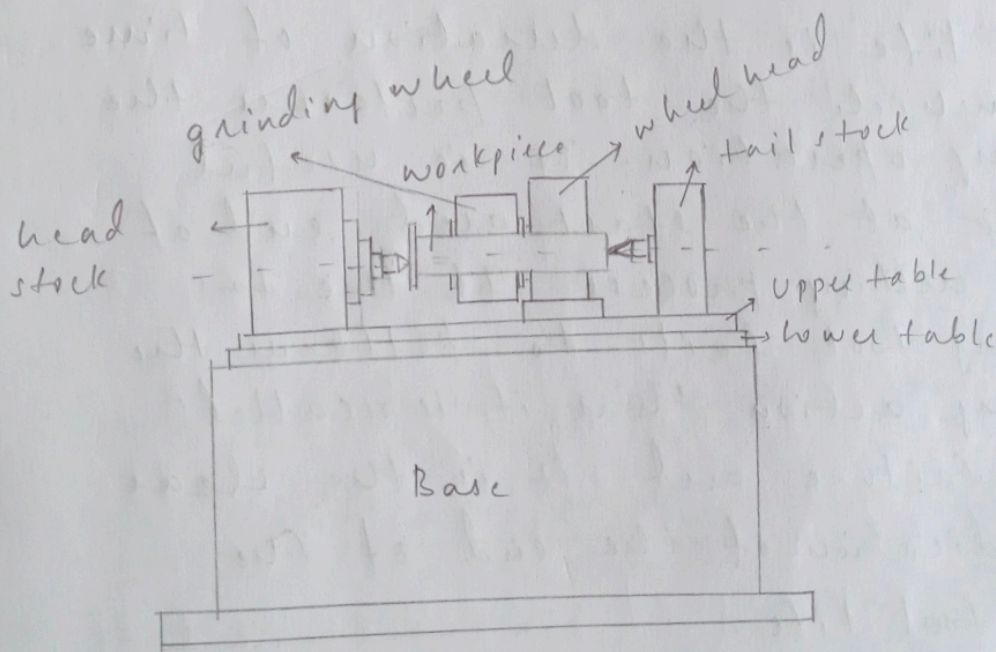 grinding wheel
wheel head
workpiece
tail stock
head
stock
upper table
lower table
Base